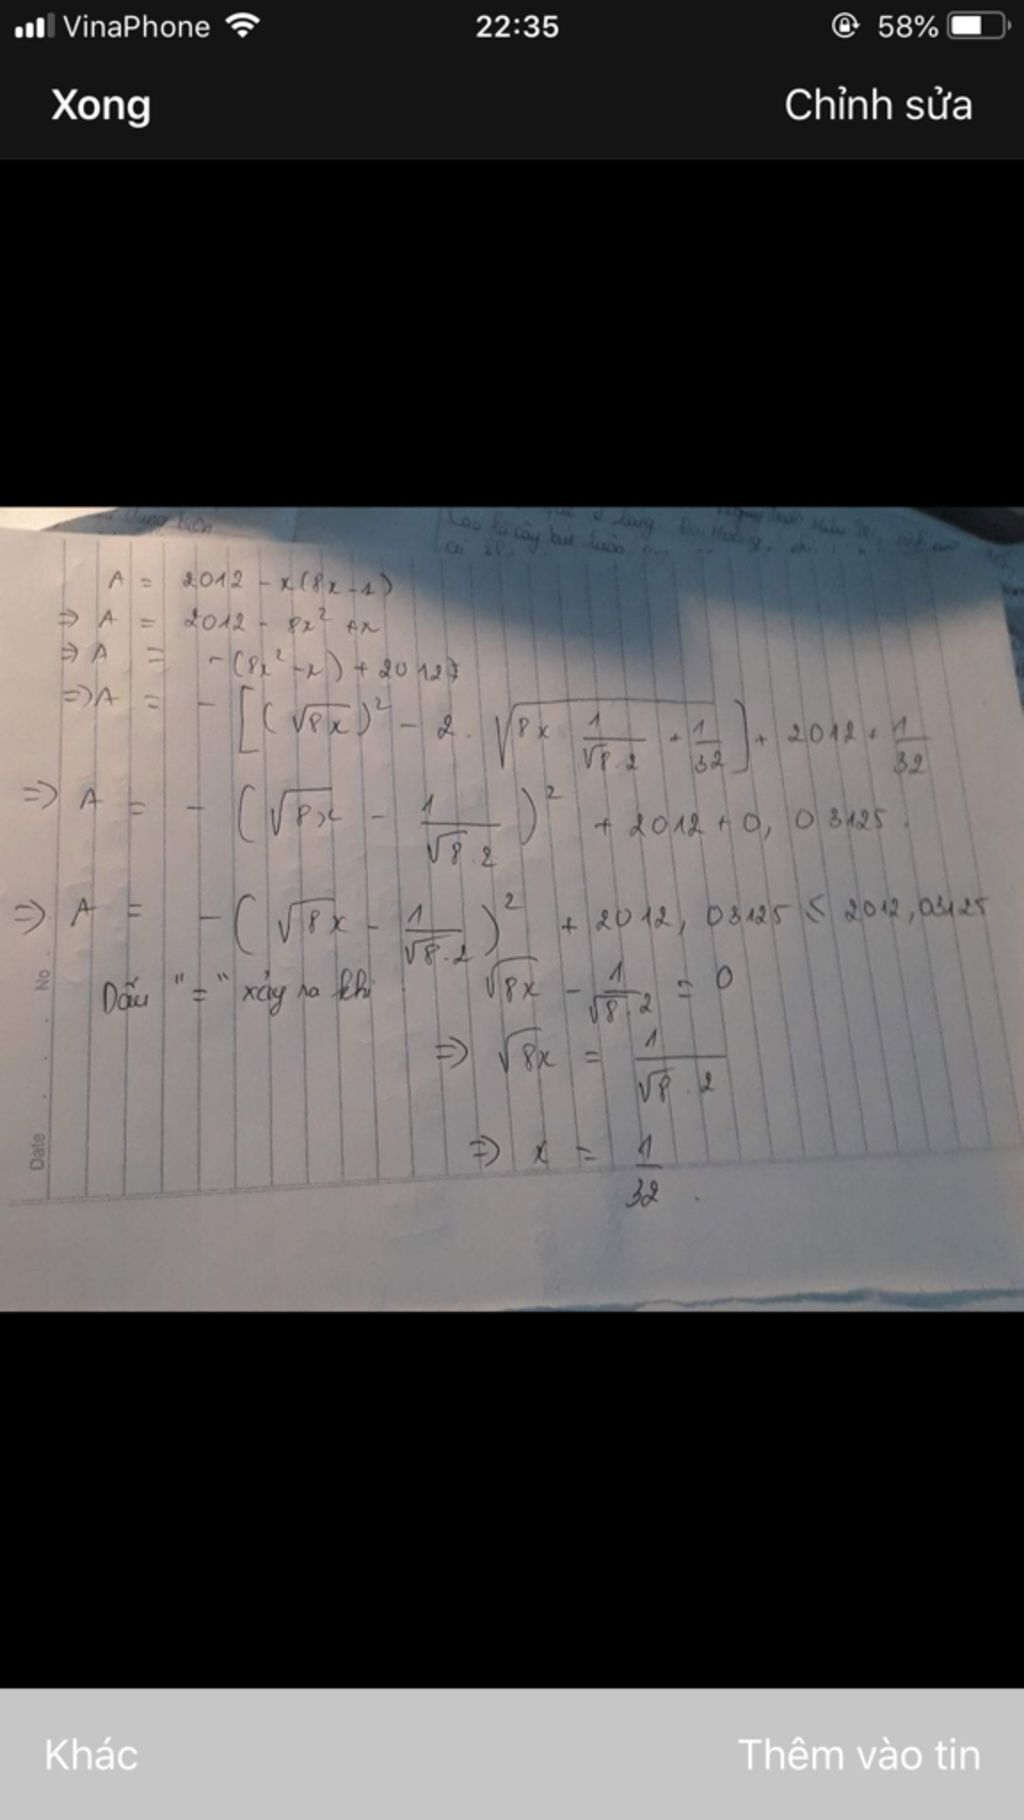 VinaPhone 22:35 58%
Xong Chỉnh sửa
A = 2012 - x(8x-1)
=> A = 2012 - 8x² + x
=> A = -(8x² - x) + 2012
=> A = - [(√8x)² - 2. √8x 1/√8.2 + 1/32] + 2012 + 1/32
=> A = - (√8x - 1/√8.2)² + 2012 + 0,03125.
=> A = - (√8x - 1/√8.2)² + 2012,03125 ≤ 2012,03125
Dấu "=" xảy ra khi √8x - 1/√8.2 = 0
=> √8x = 1/√8.2
=> x = 1/32.
No.
Date
Khác Thêm vào tin